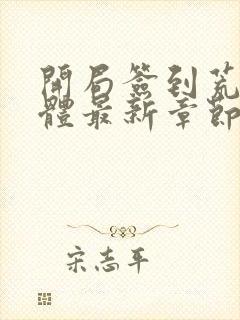 開局簽到荒
體最新章節
宋志平